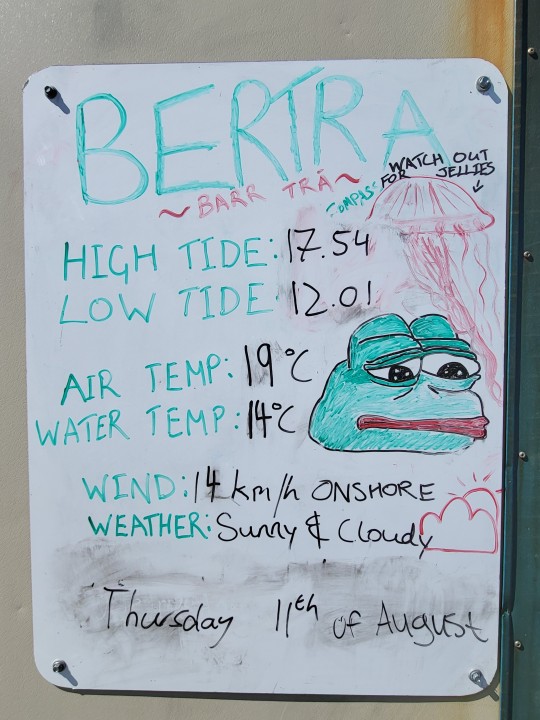 BERTRA
~BARR TRÁ~
WATCH OUT
FOR JELLIES
COMPASS
HIGH TIDE: 17.54
LOW TIDE: 12.01
AIR TEMP: 19°C
WATER TEMP: 14°C
WIND: 14 km/h ONSHORE
WEATHER: Sunny & Cloudy
Thursday 11th of August